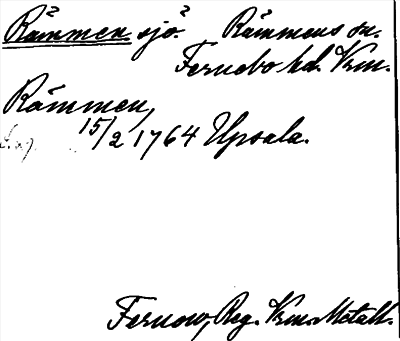 Rämmen sjö. Rämmens sn.
Fernebo hd. Vrm.
Rämmen,
15/2 1764 Upsala.
Fernow, Reg. Vrm. Metall.